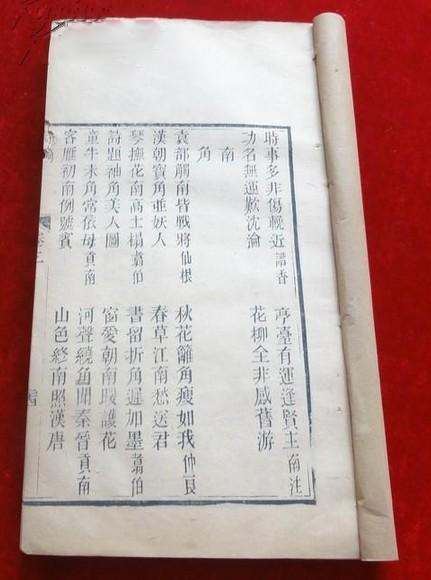 時事多非傷輓近 譜香 亭臺有運逢賢主 南注
功名無運歎沈淪 花柳全非感舊游
南
角
袁部觸南皆戰將 仙根 秋花籬角瘦如我 仲良
漢朝賓角並妖人 春草江南愁送君
琴撫花南高士榻 翥伯 書留折角遲加墨 翥伯
詩題袖角美人圖 窗愛朝南暖護花
童牛未角常依母 貢南 河聲繞角聞秦晉 貢南
客雁初南例號賓 山色終南照漢唐